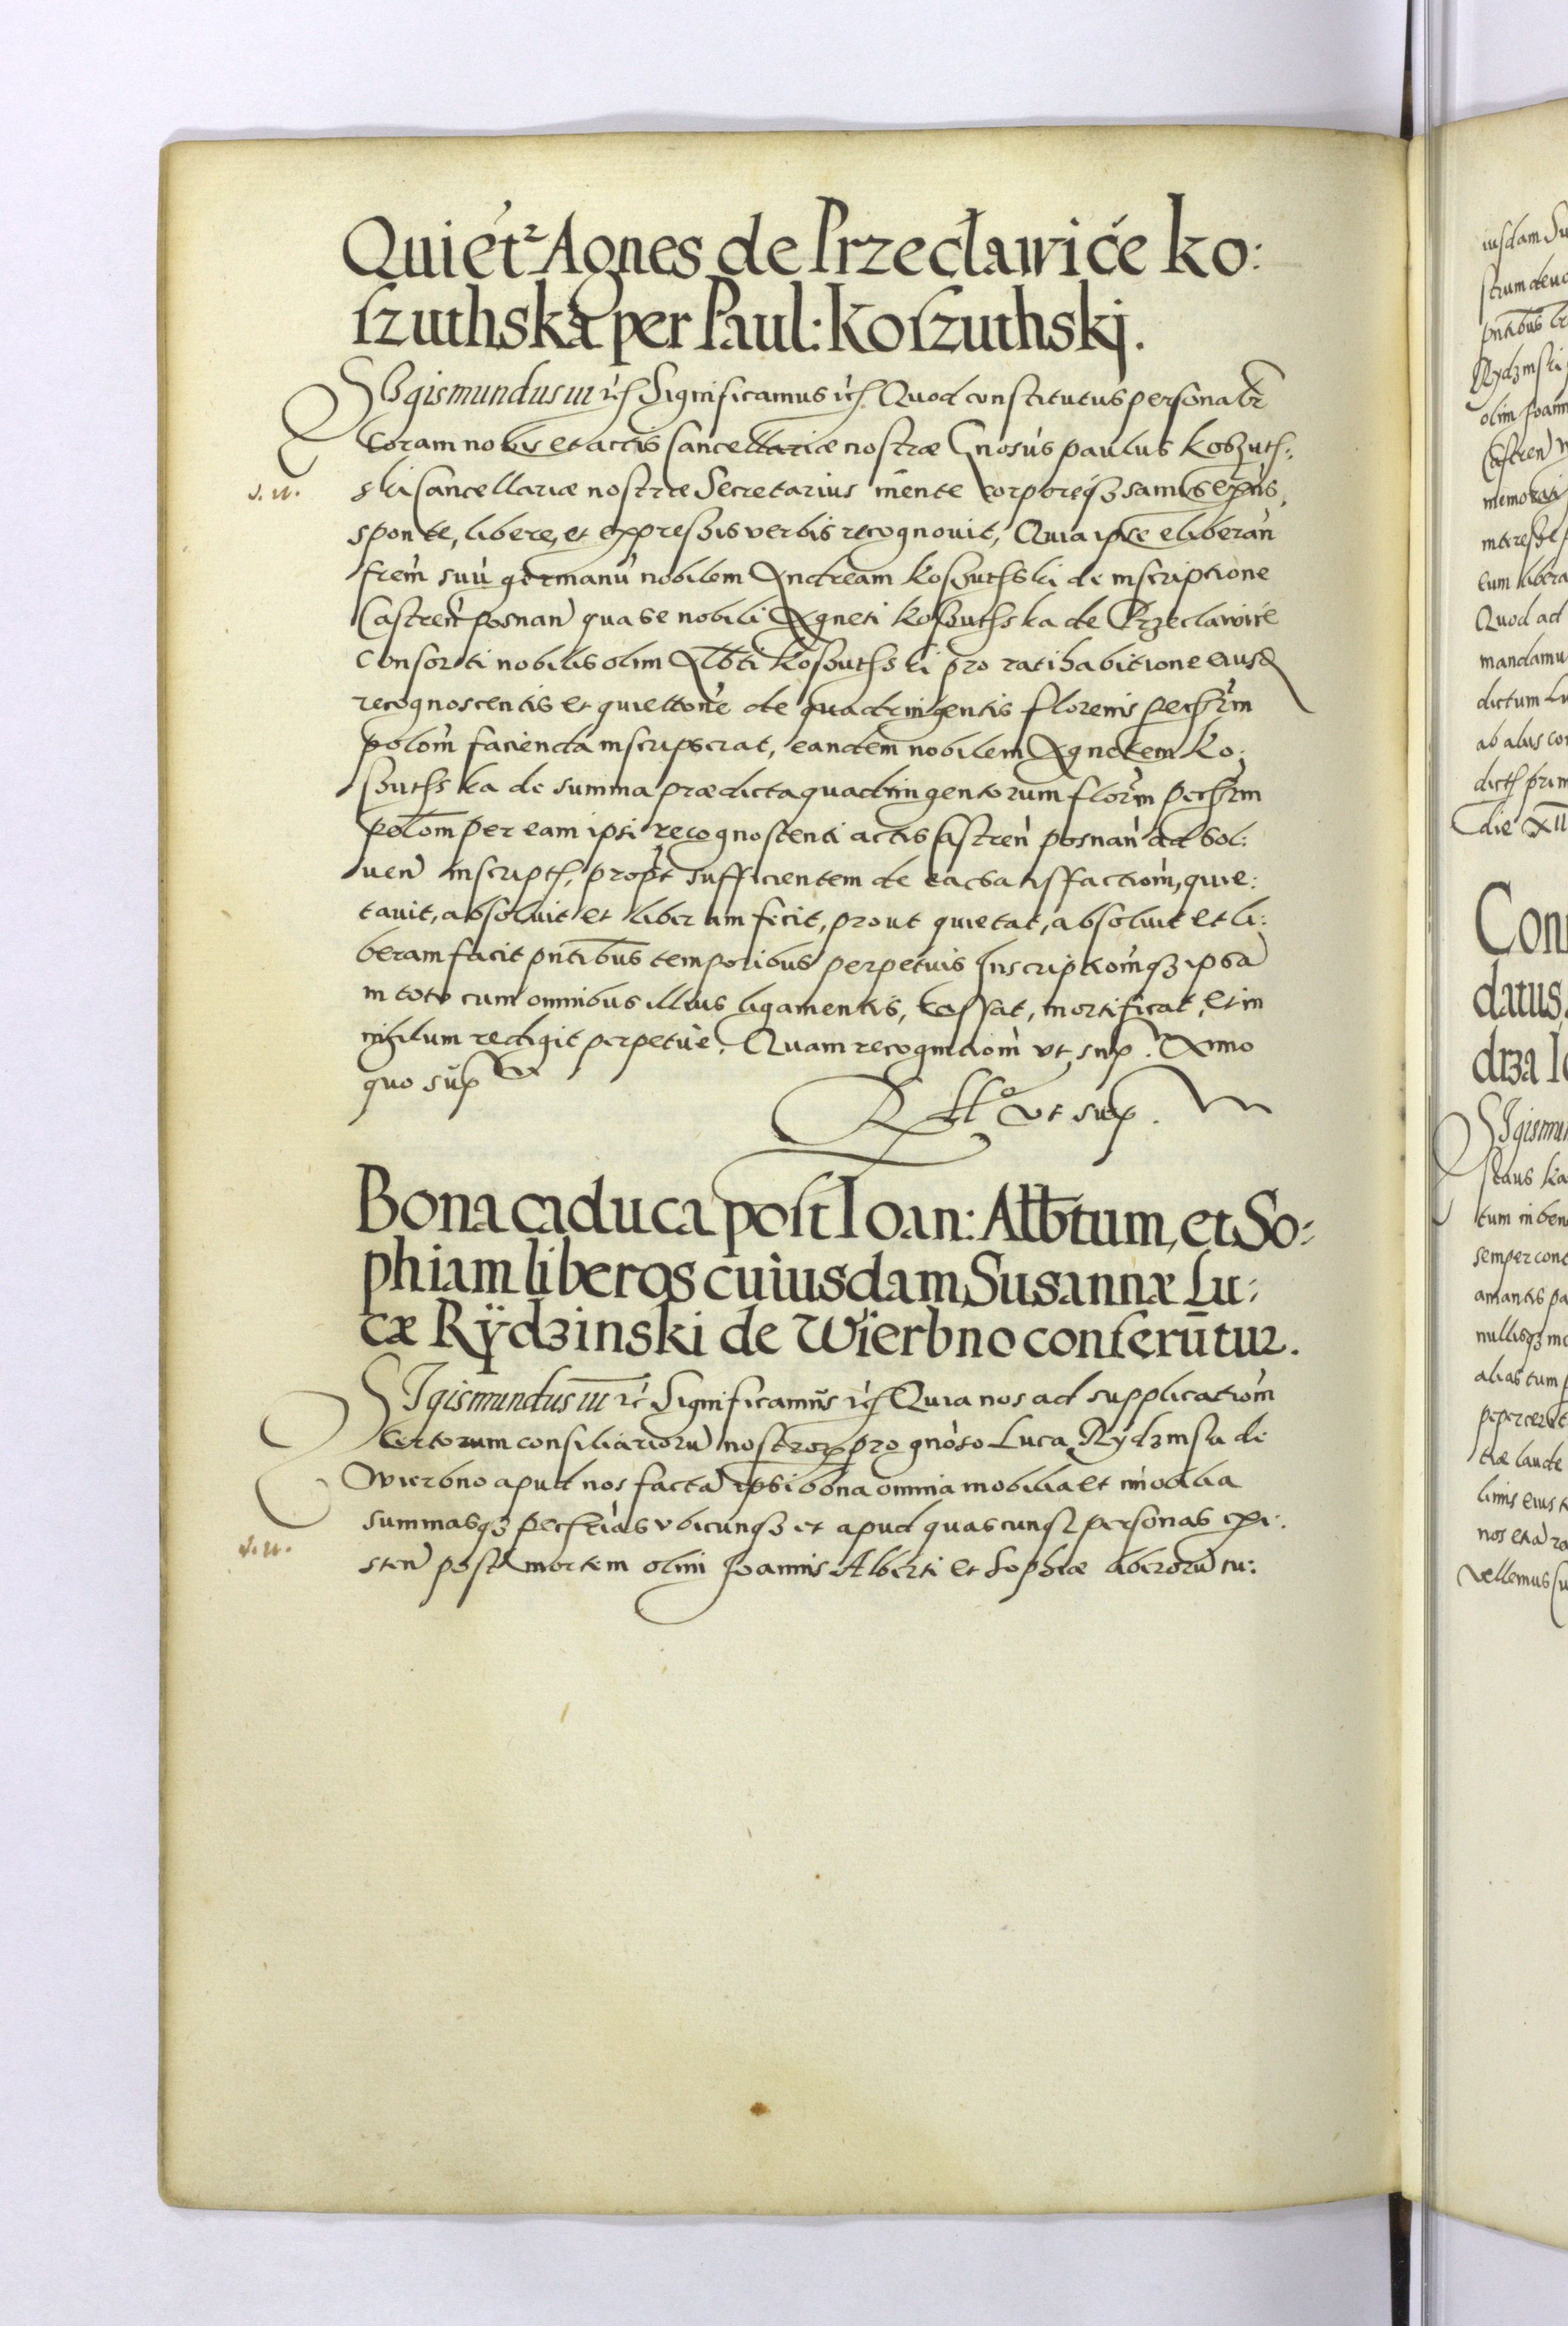 Quiet² Agnes de Przecławiće Ko:
szuthska per Paul: Koszuthskj.
Sigismundus III etc Significamus etc. Quod constitutus personalr
Coram nobis et actis Cancellariæ nostræ Gnosus paulus Koszuth:
s. u.
ski Cancellariæ nostræ Secretarius mente corporeqz sanus exns,
sponte, libere, et expressis verbis recognovit, Quia ipse eliberan
frem suu germanu nobilem Andream Koszuthski de inscriptione
Castren posnan qua se nobili Agneti Koszuthska de Przeclawice
Consorti nobilis olim Albti Koszuthski pro ratihabitione eiusd
recognoscentis et quiettone de quadringentis florenis pechrm
polom facienda inscripserat, eandem nobilem Agnetem Ko:
szuthska de summa prædicta quadringentorum florm pechrm
polom per eam ipsi recognoscenti actis Castren posnan ad sol:
uen inscript, propt sufficientem de ea satisfactiom, quie:
tauit, absoluit et liberam fecit, prout quietat, absoluit et li:
beram facit pntibus temporibus perpetuis Inscriptiomqz ipsa
in toto cum omnibus illius ligamentis, cassat, mortificat, et in
nihilum redigit perpetue. Quam recognitiom vt sup. Anno
quo sup
Rllo vt sup.
Bona caduca post Ioan: Albtum, et So:
phiam liberos cuiusdam Susannæ Lu:
cæ Rÿdzinski de Wierbno conferūtur.
Sigismundus III etc Significamus etc Quia nos ad supplicatiom
Certorum consiliarioru nostror pro gnoso Luca Rydzinski de
Wierbno apud nos facta ipsi bona omnia mobilia et imobilia
summasqz pechrias vbicunqz et apud quascunqz personas exi:
s. u.
sten post mortem olim Joannis Alberti et Sophiæ liberoru cu:
iusdam Su
Rydzinski
olim Joann
Castren
eum libera
Quod ad
mandamu
dictum Lu
ab alus con
die XII
Con
datus
drza I
Sigismu
tum in ben
semper conc
amantis pa
nullisqz mo
alias tum p
tiæ laude
vellemus